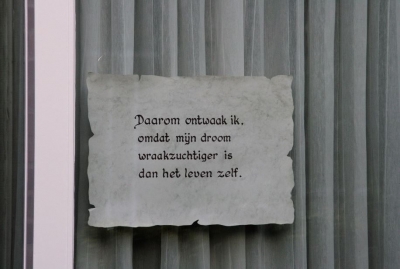 Daarom ontwaak ik,
omdat mijn droom
wraakzuchtiger is
dan het leven zelf.